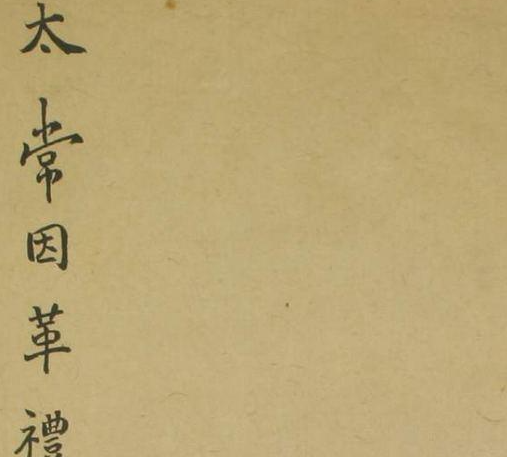 太常因革禮